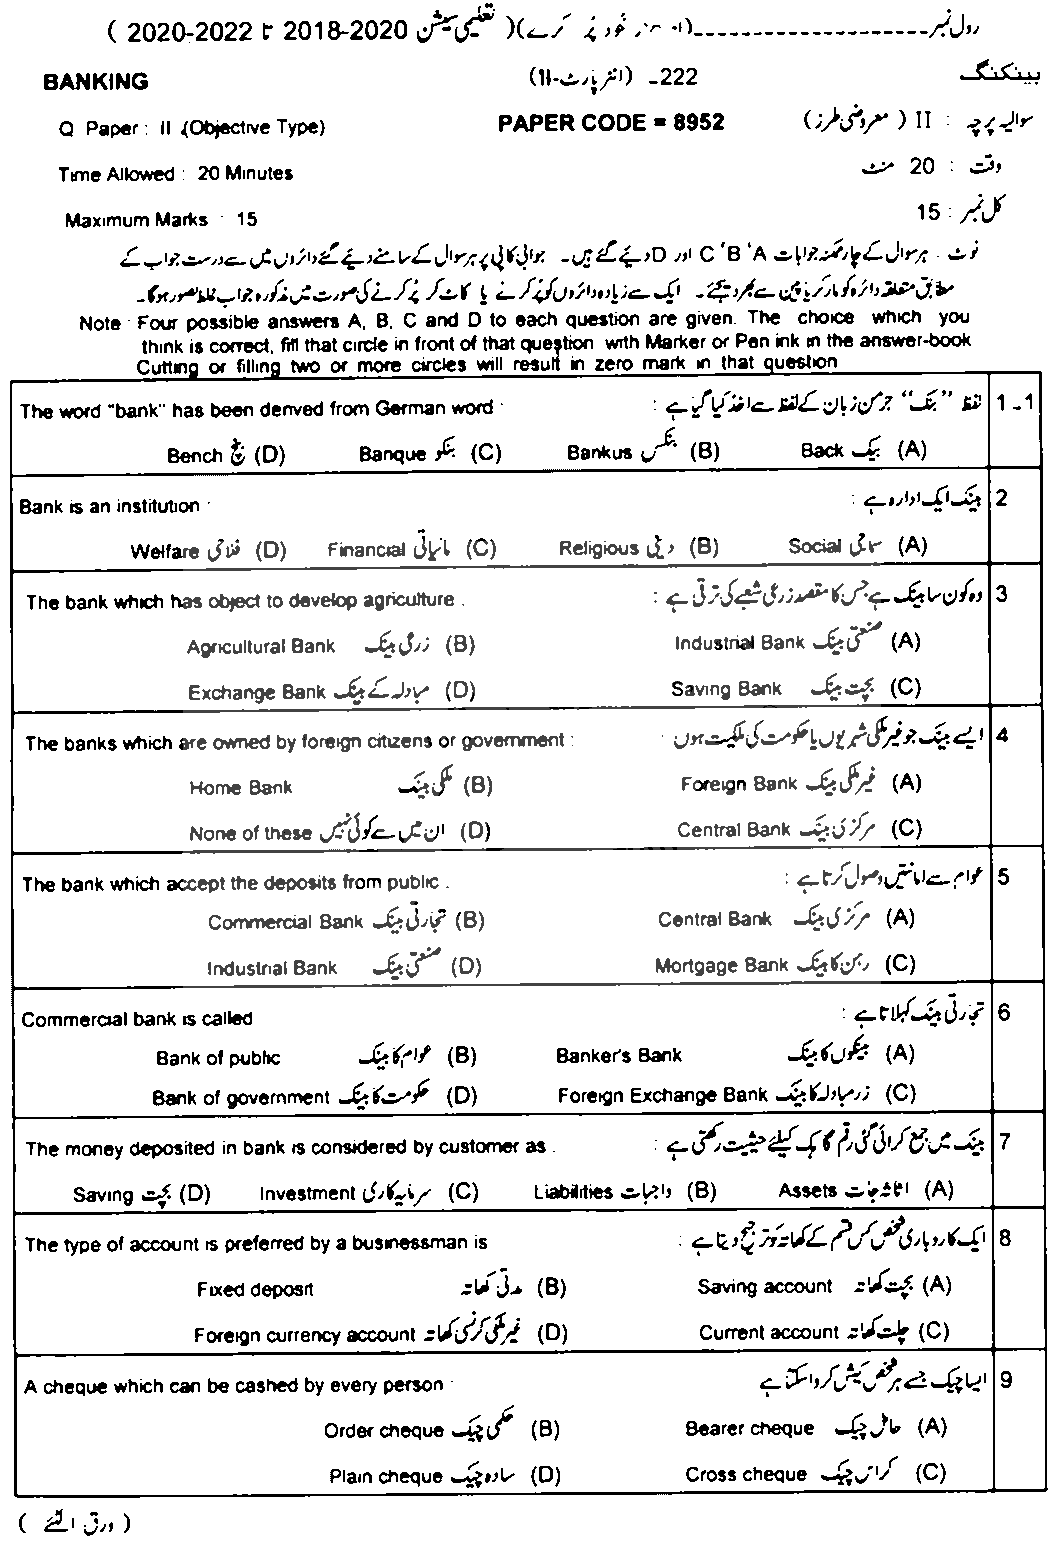 رول نمبر ( تعلیمی سیشن 2020-2018 تا 2022-2020 )
BANKING 222۔ (انٹر پارٹ-II) بینکنگ
Q Paper : II (Objective Type) PAPER CODE = 8952 سوالیہ پرچہ : II ( معروضی طرز )
Time Allowed : 20 Minutes وقت : 20 منٹ
Maximum Marks : 15 کل نمبر : 15
نوٹ : ہر سوال کے چار ممکنہ جوابات A ‘B ‘C اور D دیئے گئے ہیں۔ جوابی کاپی پر ہر سوال کے سامنے دیئے گئے دائروں میں سے درست جواب کے
مطابق متعلقہ دائرہ کو مارکر یا پین سے بھر دیجئے۔ ایک سے زیادہ دائروں کو پُر کرنے یا کاٹ کر پُر کرنے کی صورت میں مذکورہ جواب غلط تصور ہوگا۔
Note : Four possible answers A, B, C and D to each question are given. The choice which you
think is correct, fill that circle in front of that question with Marker or Pen ink in the answer-book
Cutting or filling two or more circles will result in zero mark in that question
The word "bank" has been derived from German word : لفظ "بنک" جرمن زبان کے لفظ سے اخذ کیا گیا ہے : 1-1
Bench بنچ (D) Banque بنکو (C) Bankus بنکس (B) Back بیک (A)
Bank is an institution : بینک ایک ادارہ ہے : 2
Welfare فلاحی (D) Financial مالیاتی (C) Religious دینی (B) Social سماجی (A)
The bank which has object to develop agriculture . وہ کون سا بینک ہے جس کا مقصد زرعی شعبے کی ترقی ہے : 3
Agricultural Bank زرعی بینک (B) Industrial Bank صنعتی بینک (A)
Exchange Bank مبادلہ کے بینک (D) Saving Bank بچت بینک (C)
The banks which are owned by foreign citizens or government : ایسے بینک جو غیر ملکی شہریوں یا حکومت کی ملکیت ہوں : 4
Home Bank ملکی بینک (B) Foreign Bank غیر ملکی بینک (A)
None of these ان میں سے کوئی نہیں (D) Central Bank مرکزی بینک (C)
The bank which accept the deposits from public . عوام سے امانتیں وصول کرتا ہے : 5
Commercial Bank تجارتی بینک (B) Central Bank مرکزی بینک (A)
Industrial Bank صنعتی بینک (D) Mortgage Bank رہن کا بینک (C)
Commercial bank is called تجارتی بینک کہلاتا ہے : 6
Bank of public عوام کا بینک (B) Banker's Bank بینکوں کا بینک (A)
Bank of government حکومت کا بینک (D) Foreign Exchange Bank زرمبادلہ کا بینک (C)
The money deposited in bank is considered by customer as . بینک میں جمع کرائی گئی رقم گاہک کیلئے حیثیت رکھتی ہے : 7
Saving بچت (D) Investment سرمایہ کاری (C) Liabilities واجبات (B) Assets اثاثہ جات (A)
The type of account is preferred by a businessman is ایک کاروباری شخص کس قسم کے کھاتہ کو ترجیح دیتا ہے : 8
Fixed deposit مدتی کھاتہ (B) Saving account بچت کھاتہ (A)
Foreign currency account غیر ملکی کرنسی کھاتہ (D) Current account چلت کھاتہ (C)
A cheque which can be cashed by every person : ایسا چیک جسے ہر شخص کیش کروا سکتا ہے 9
Order cheque حکمی چیک (B) Bearer cheque حامل چیک (A)
Plain cheque سادہ چیک (D) Cross cheque کراس چیک (C)
( ورق الٹئے )